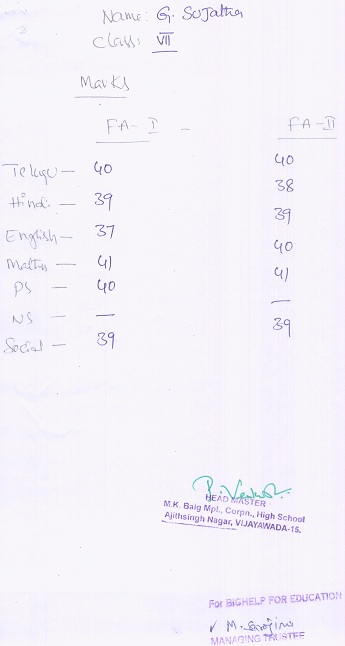 Name: G. Sujatha
Class: VII
Marks
FA-I - FA-II
Telugu - 40 40
Hindi - 39 38
English - 37 39
Maths - 41 40
PS - 40 41
NS - — —
Social - 39 39
HEAD MASTER
M.K. Baig Mpl., Corpn., High School
Ajithsingh Nagar, VIJAYAWADA-15.
For BIGHELP FOR EDUCATION
M. Sarojini
MANAGING TRUSTEE